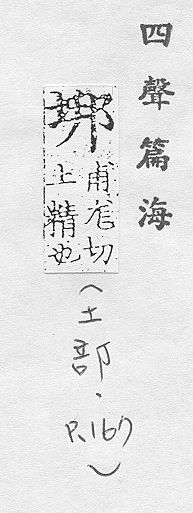 四聲篇海
垹
甫尨切
土精也
(土部.P.167)